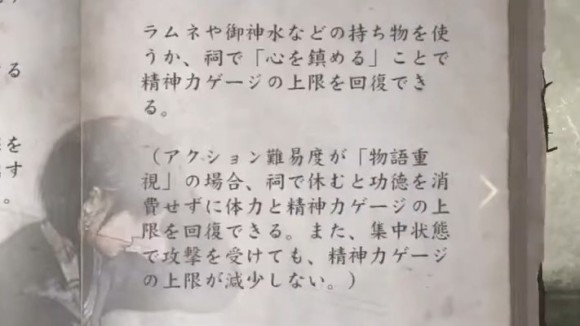 ラムネや御神水などの持ち物を使
うか、祠で「心を鎮める」ことで
精神力ゲージの上限を回復でき
る。
（アクション難易度が「物語重
視」の場合、祠で休むと功徳を消
費せずに体力と精神力ゲージの上
限を回復できる。また、集中状態
で攻撃を受けても、精神力ゲージ
の上限が減少しない。）
る
を
す
。